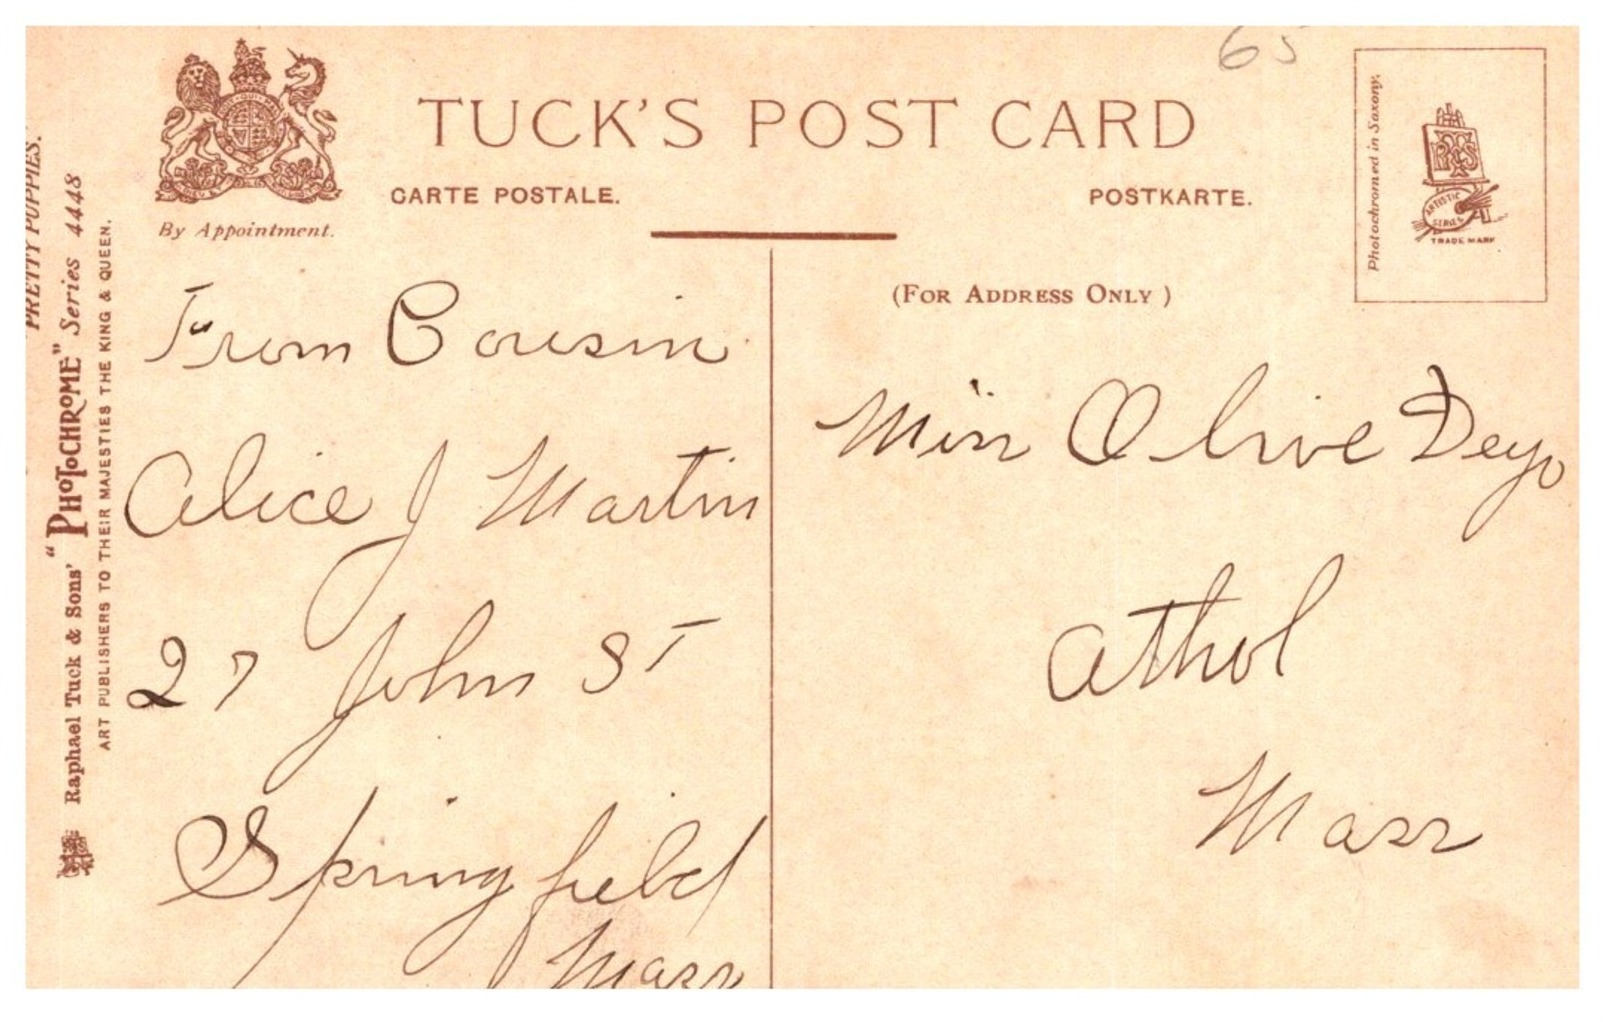 65
TUCK'S POST CARD
CARTE POSTALE.
POSTKARTE.
By Appointment.
Photochromed in Saxony.
R T & S
ARTISTIC
SERIES
TRADE MARK
(FOR ADDRESS ONLY )
PRETTY PUPPIES.
Raphael Tuck & Sons' "PHOTOCHROME" Series 4448
ART PUBLISHERS TO THEIR MAJESTIES THE KING & QUEEN.
From Cousin
Alice J Martin
27 John St
Springfield
Mass
Miss Olive Deyo
Athol
Mass